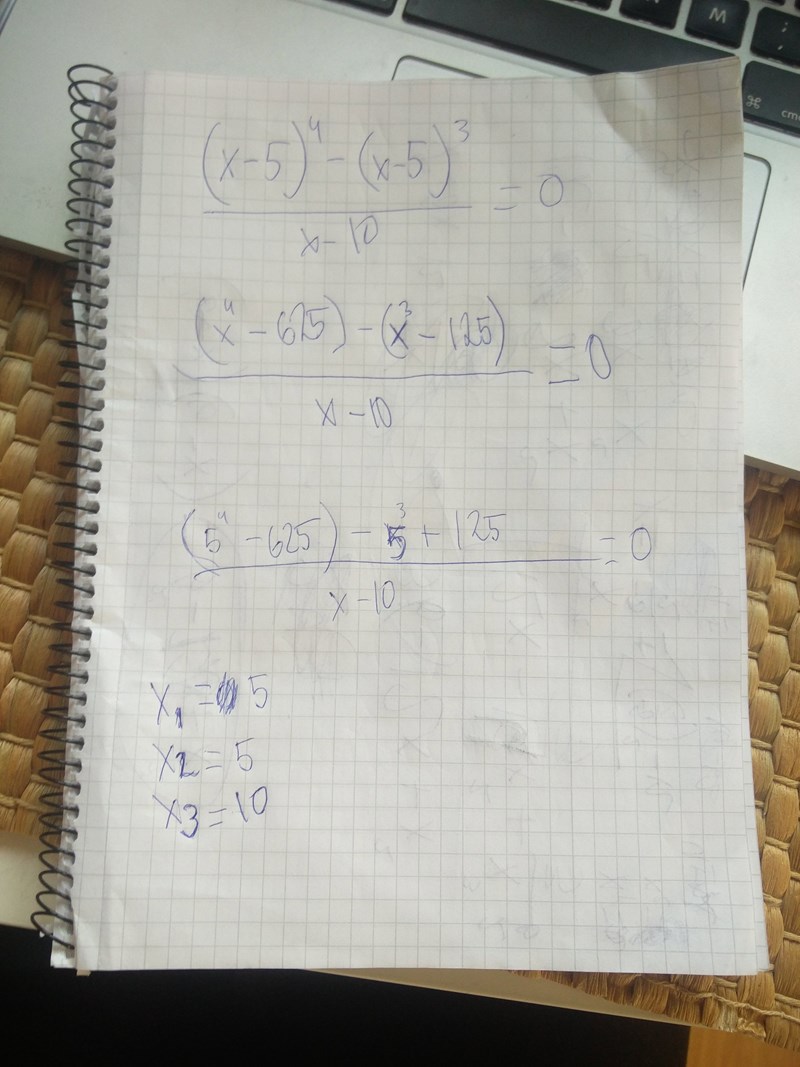 M
;
⌘ cmd
(x-5)⁴ - (x-5)³
x-10
= 0
(x⁴ - 625) - (x³ - 125)
x-10
= 0
(5⁴ - 625) - 5³ + 125
x-10
= 0
x₁ = 5
x₂ = 5
x₃ = 10